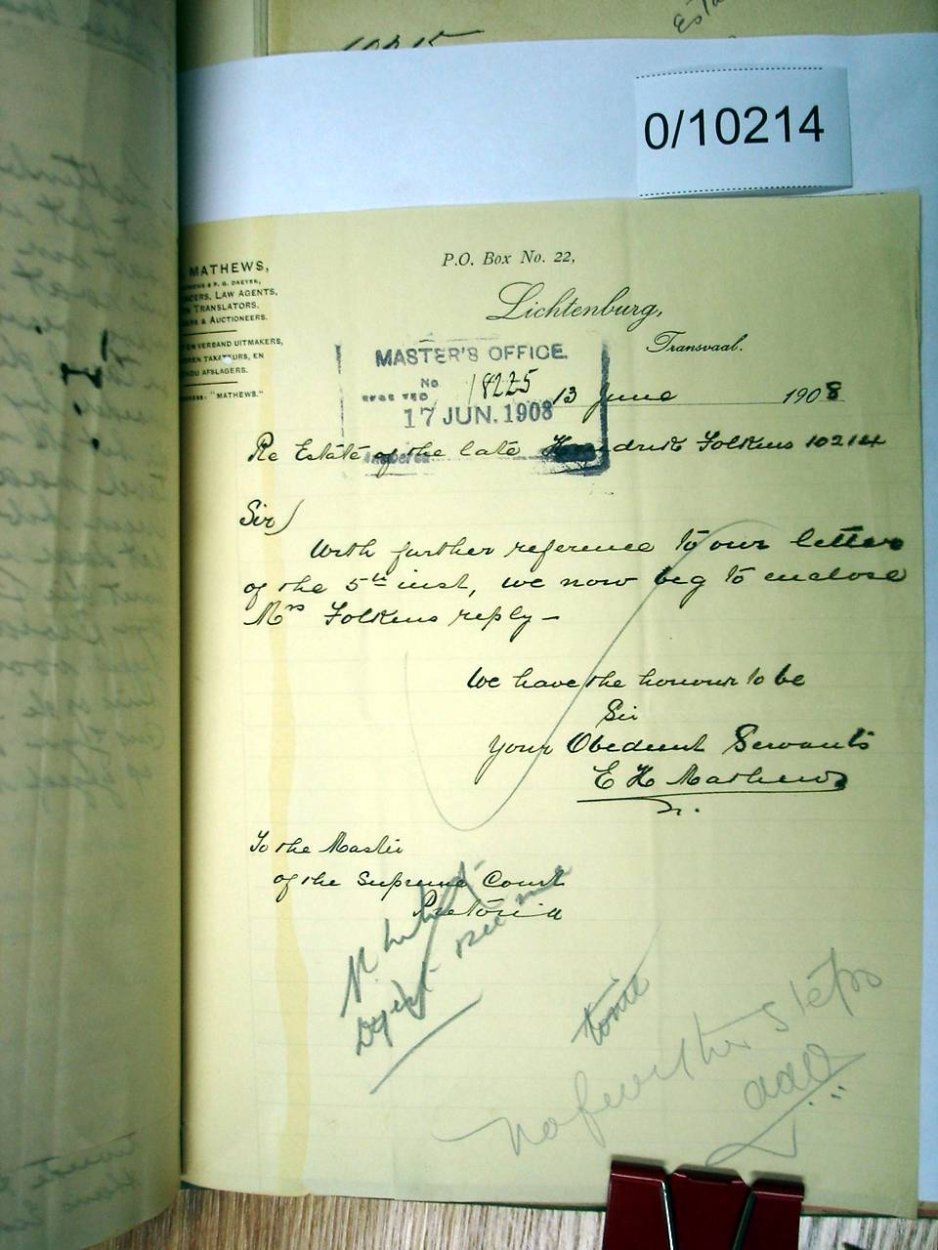 0/10214
MATHEWS,
& P. G. DREYER,
LAW AGENTS,
TRANSLATORS,
& AUCTIONEERS.
VERBAND UITMAKERS,
TAXATEURS, EN
AFSLAGERS.
"MATHEWS."
P.O. Box No. 22,
Lichtenburg,
Transvaal.
MASTER'S OFFICE.
No 18225
17 JUN. 1908
13 June 1908
Re Estate of the late Hendrik Folkens 10214
Sir)
With further reference to our letter
of the 5th inst, we now beg to enclose
Mrs Folkens reply –
We have the honour to be
Sir
Your Obedient Servants
E H Mathews
To the Master
of the Supreme Court
Pretoria
no further steps